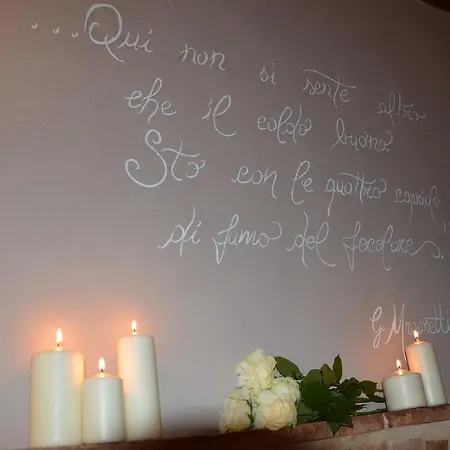 ...Qui non si sente altro
che il caldo buono.
Sto con le quattro capriole
di fumo del focolare.
G. Ungaretti